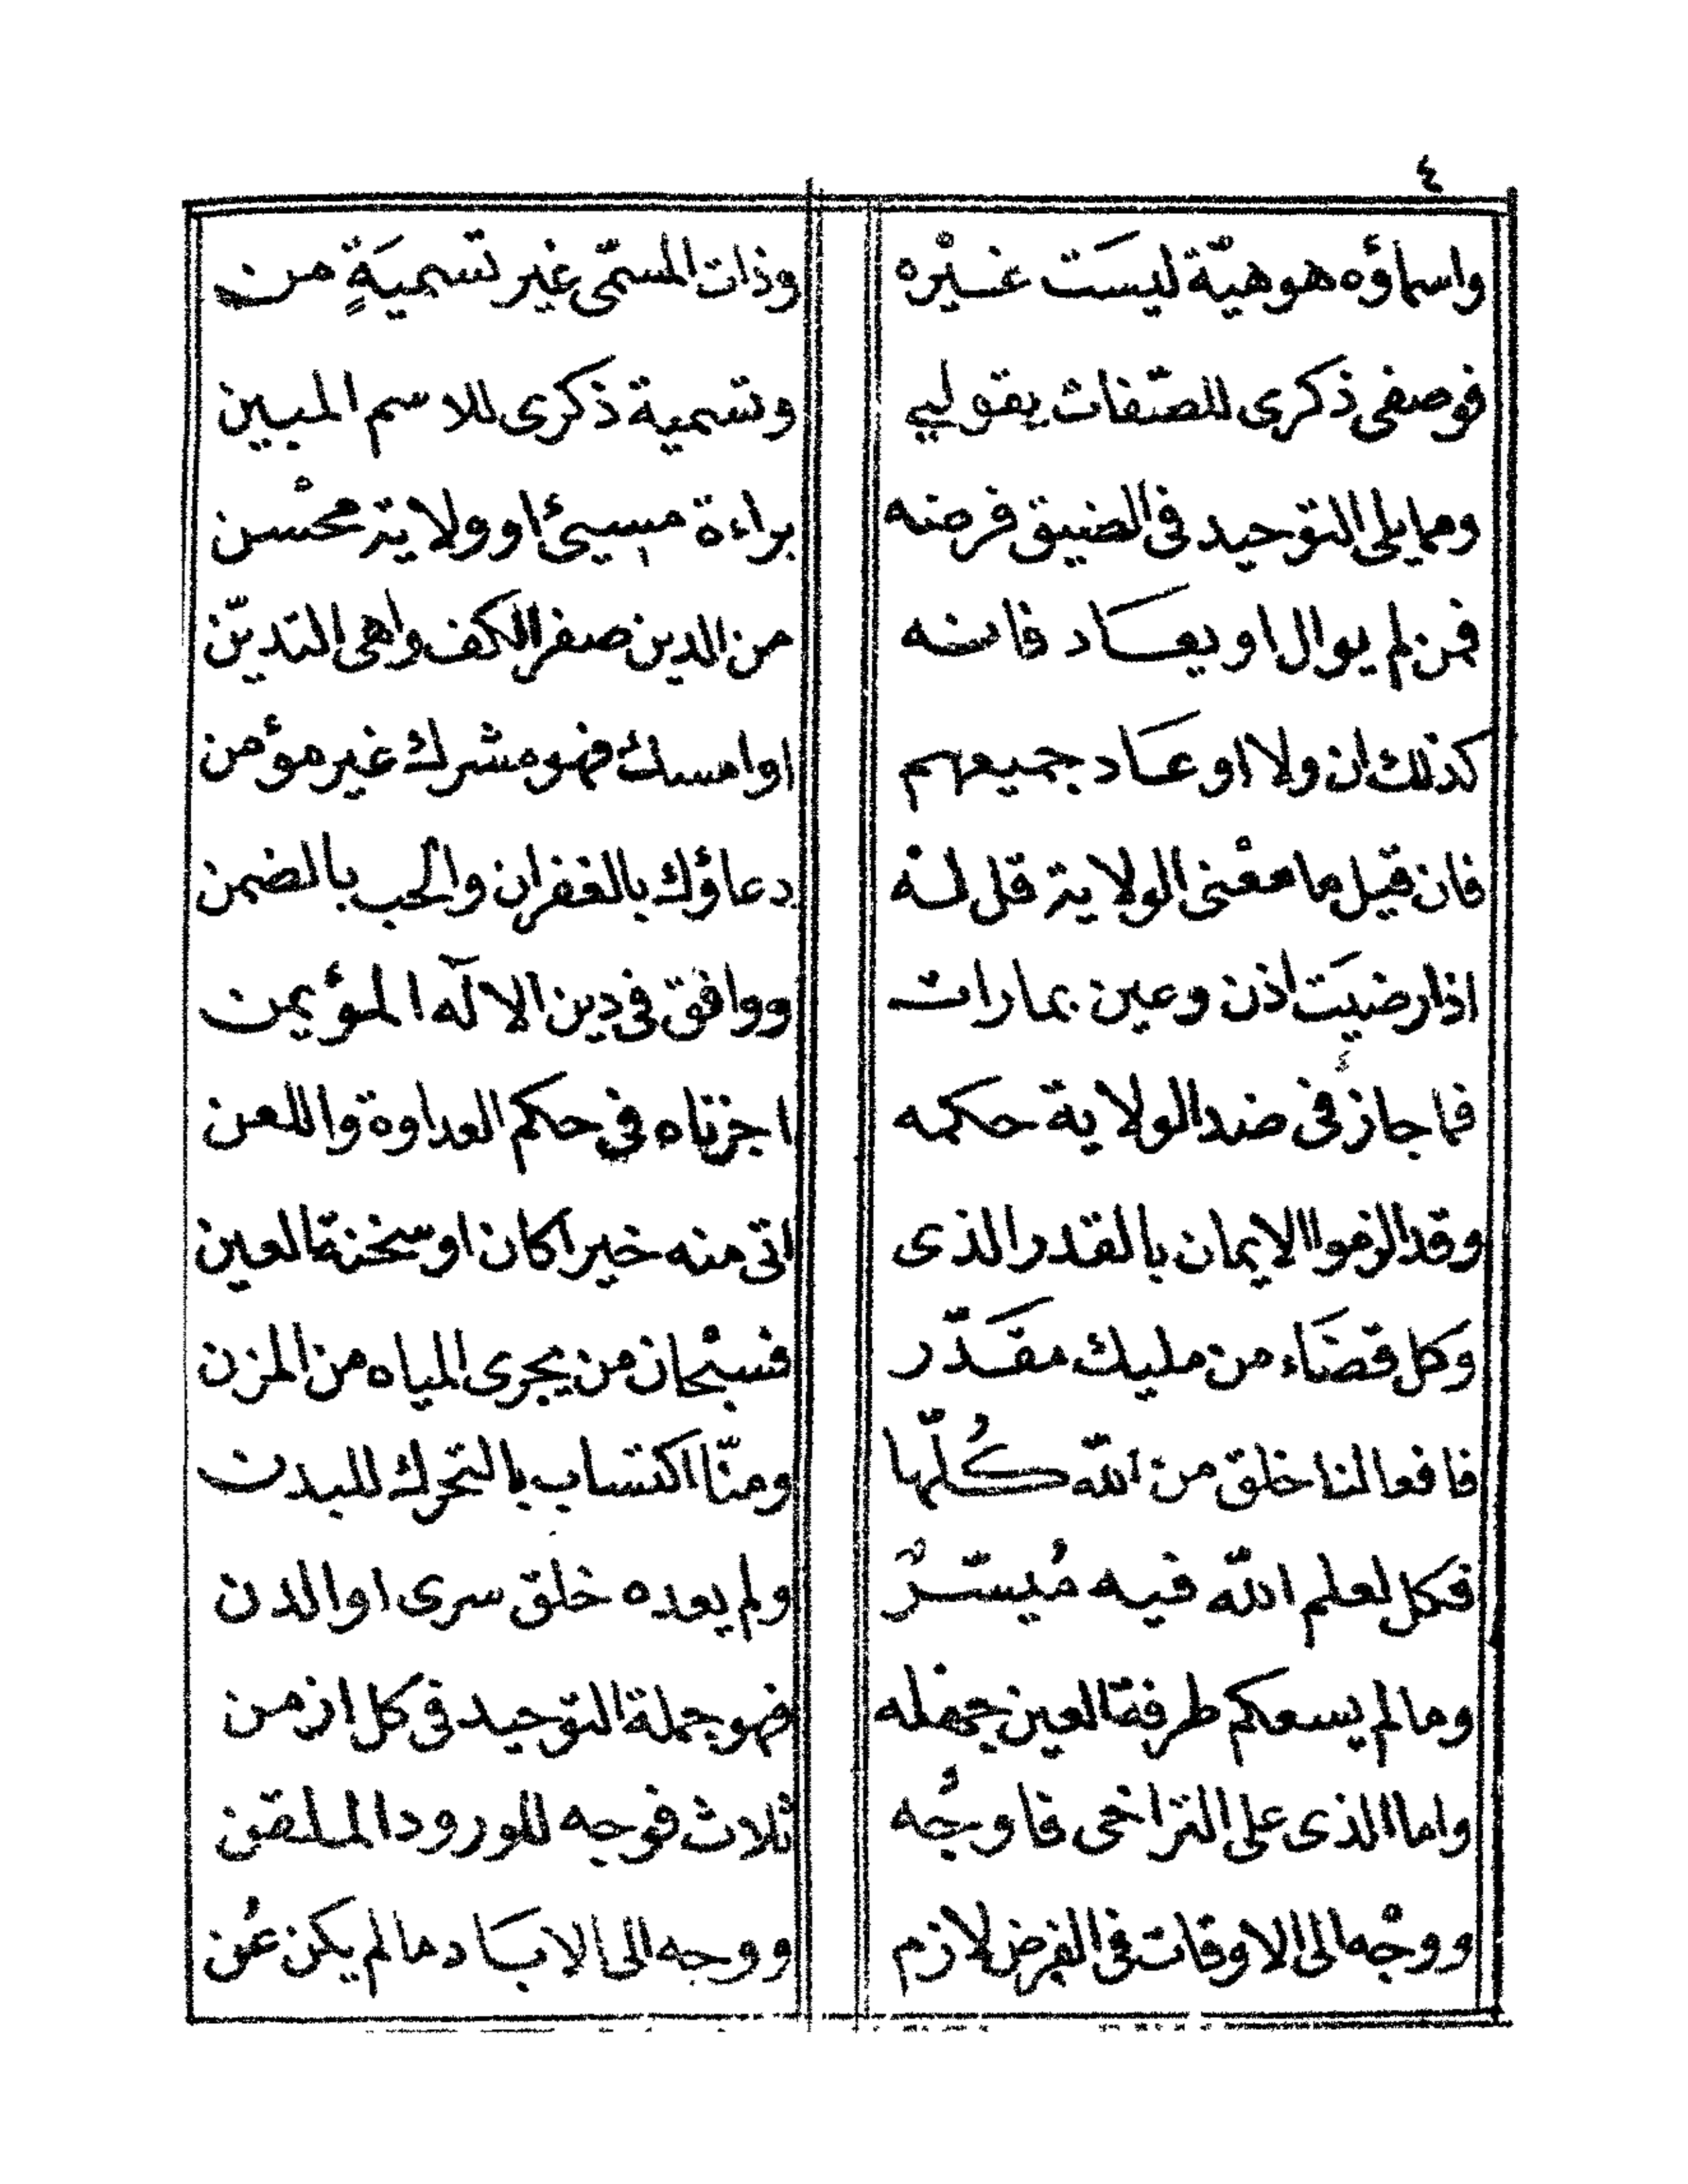 ٤
واسماؤه هو هيّة ليسَت غيْره وذات المسمّى غير تسميَةٍ من
فوصفى ذكرى للصّفات بقولي وتسمية ذكرى للاسم المبين
ومما يلى التوحيد فى الضيق فرضه براءة مسيئ او ولاية محسْن
فمن لم يوال او يعَاد فانه من الدين صفر الكف واهى التديّن
كذلك ان ولا او عَاد جميعهم او امسك فهو مشرك غير مؤمن
فان قيل ما معْنى الولاية قل لهْ دعاؤك بالغفران والحب بالضمن
اذا رضيَت اذن وعين بما رات ووافق فى دين الالٓه المؤيمن
فما جاز فى ضد الولاية حكمه اجزناه فى حكم العداوة واللعن
وقد الزموا الايمان بالقدر الذى اتى منه خيرا كان او سخنة العين
وَكل قضَاء من مليك مقَدّر فسبْحان من يجرى المياه من المزن
فافعالنا خلق من اللّه كُلّها ومنّا اكتساب بالتحرك للبدن
فكل لعلم اللّه فيه مُيسّرٌ ولم يعده خلق سرى او الدن
وما لم يسعكم طرفة العين جهله فهو جملة التوحيد فى كل ازمن
واما الذى على التراخى فاوجُه ثلاث فوجه للورود الملقن
ووجْه الى الاوقات فى الفرض لازم ووجه الى الابَاد ما لم يكن عُن